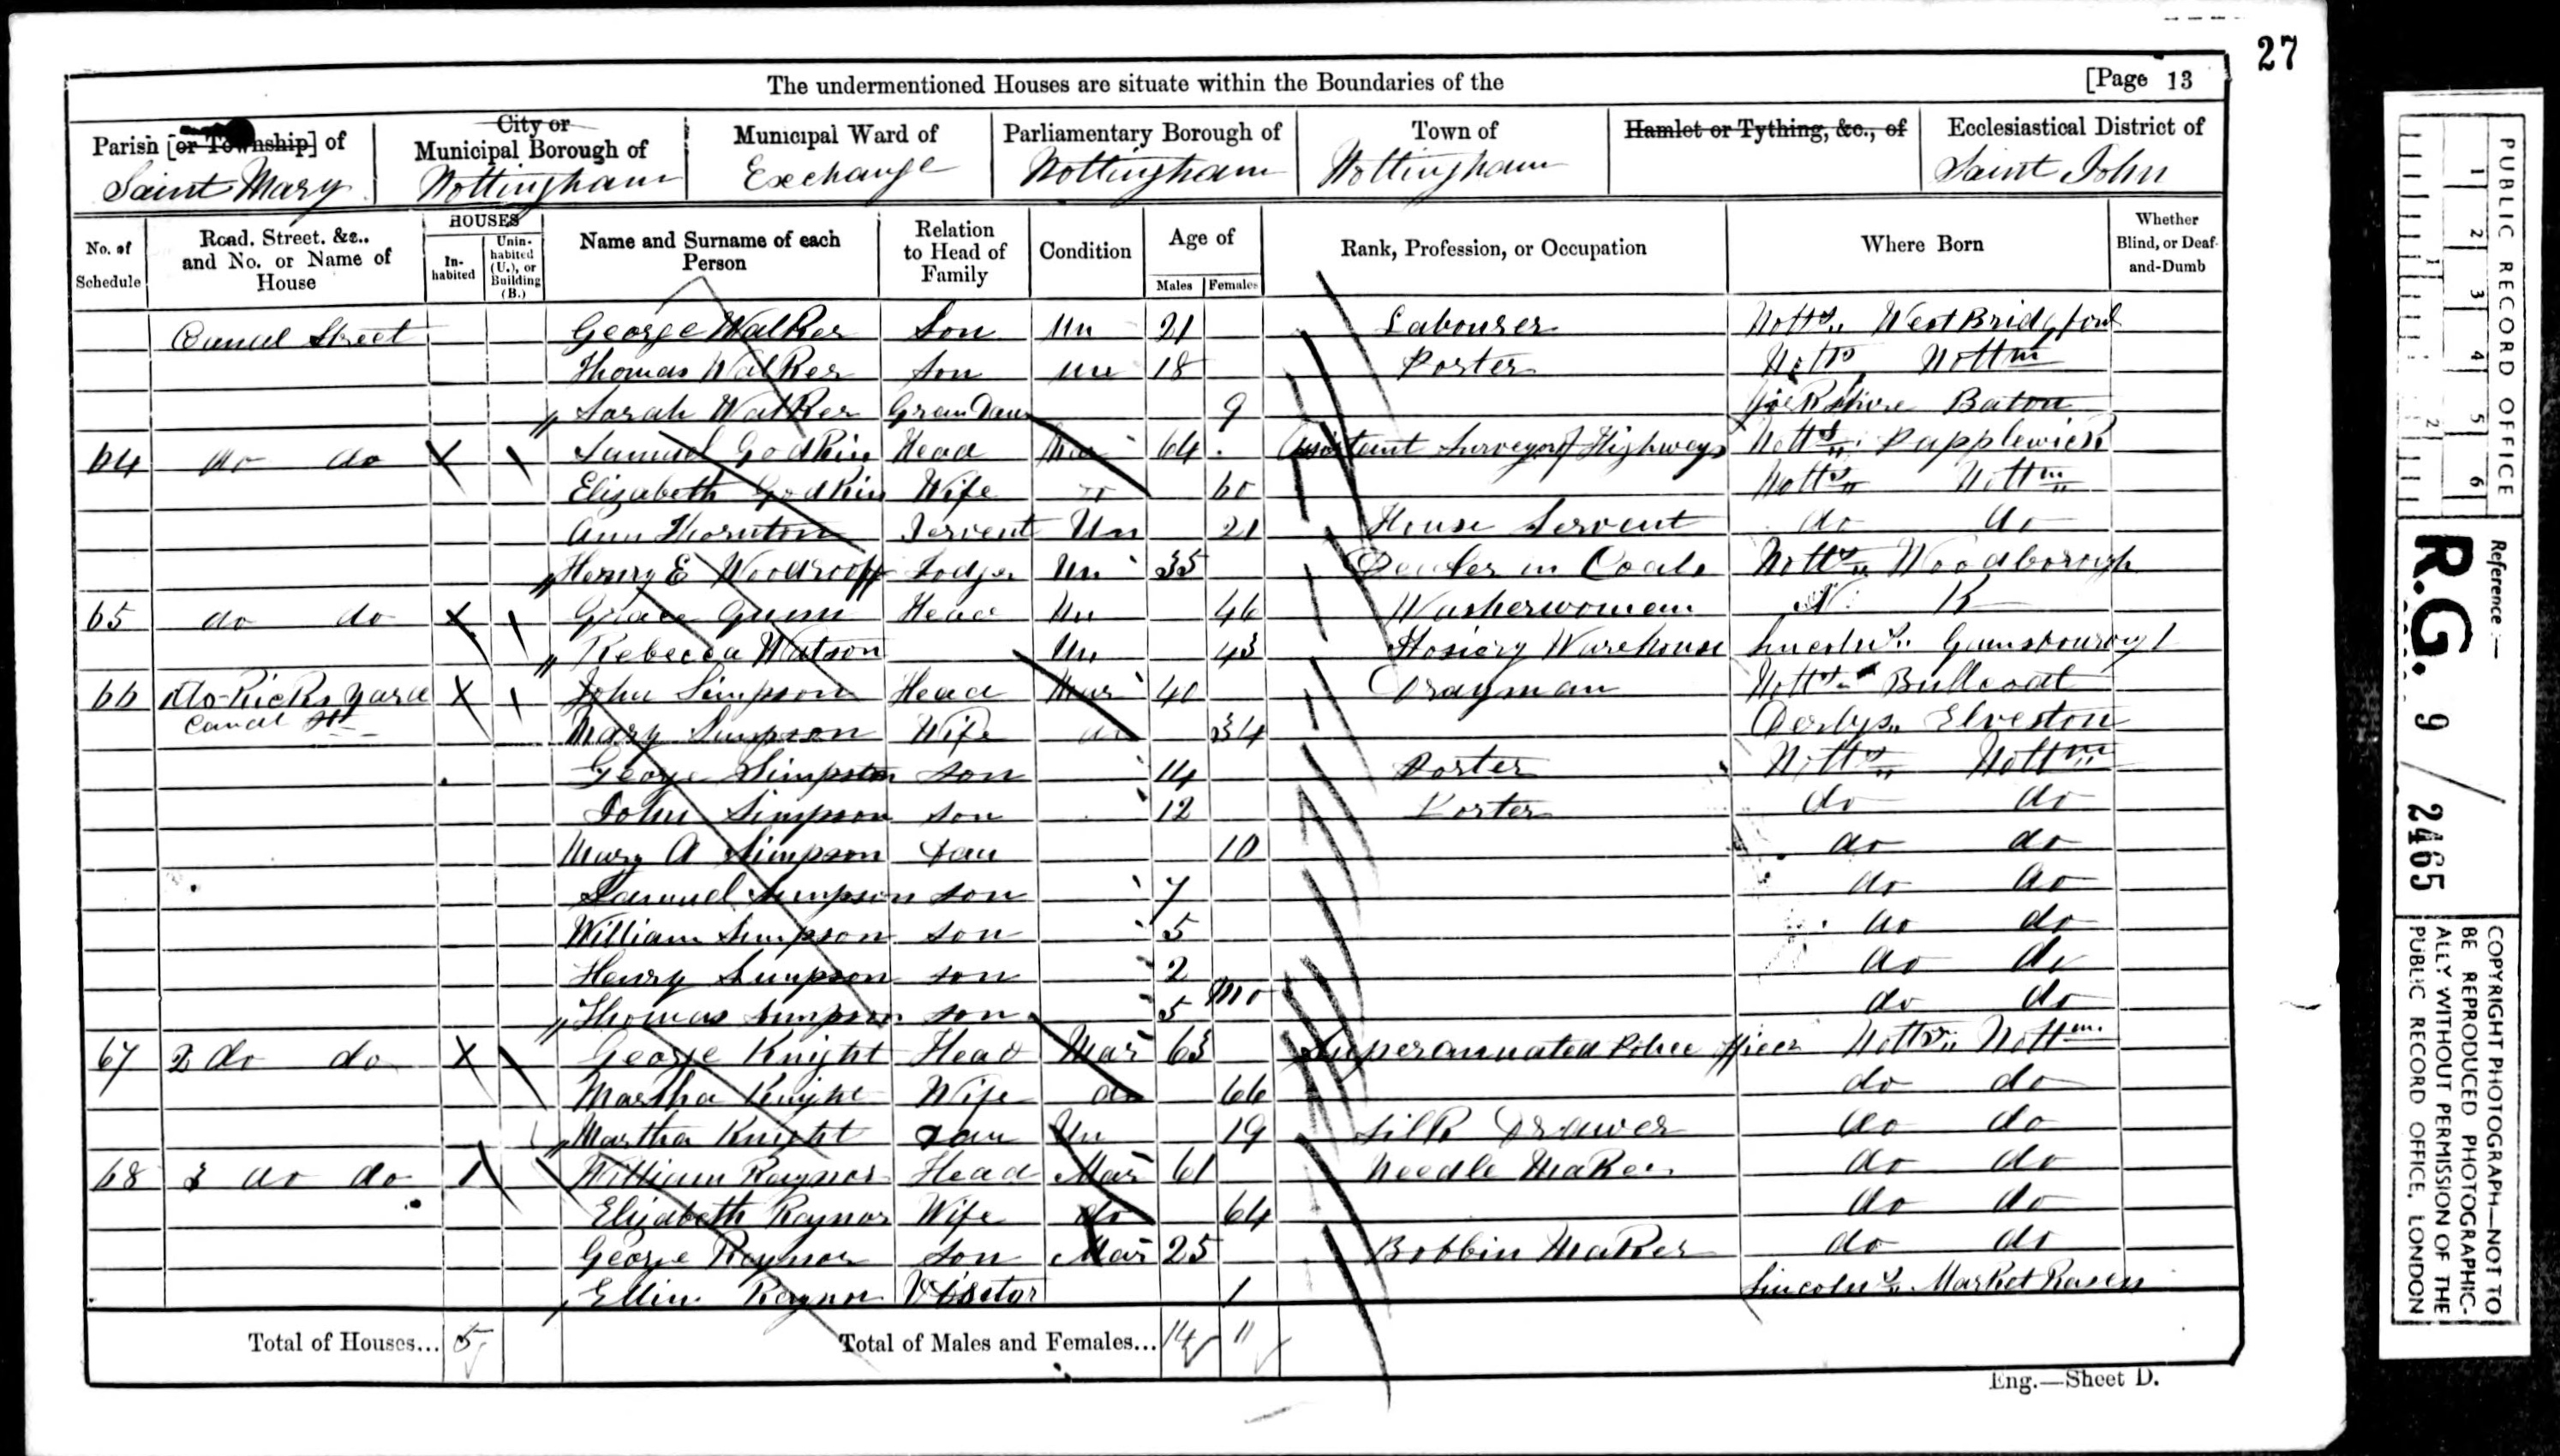 27
The undermentioned Houses are situate within the Boundaries of the [Page 13
Parish [or Township] of Saint Mary
City or Municipal Borough of Nottingham
Municipal Ward of Exchange
Parliamentary Borough of Nottingham
Town of Nottingham
Hamlet or Tything, &c., of
Ecclesiastical District of Saint John
No. of Schedule
Road, Street, &c., and No. or Name of House
HOUSES
In-habited
Unin-habited (U.), or Building (B.)
Name and Surname of each Person
Relation to Head of Family
Condition
Age of
Males Females
Rank, Profession, or Occupation
Where Born
Whether Blind, or Deaf-and-Dumb
Canal Street George Walker Son Un 21 Labourer Notts West Bridgford
Thomas Walker Son Un 18 Porter Notts Nottm
Sarah Walker GranDau 9 Baton
64 do do X Samuel Godkin Head Mar 64 Assistant Surveyor of Highways Notts Papplewick
Elizabeth Godkin Wife do 60 Notts Nottm
Ann Thornton Servent Un 21 House Servent do do
Henry E Woodrooff Lodger Un 35 Dealer in Coals Notts Woodborough
65 do do X Grace Gunn Head Un 46 Washerwoman N K
Rebecca Watson Un 43 Hosiery Warehouse Lincolns Gainsbourogh
66 Ricks Yard Canal St X John Simpson Head Mar 40 Drayman Notts Bullcoat
Mary Simpson Wife do 34 Derbys Elveston
George Simpston son 14 Porter Notts Nottm
John Simpson son 12 Porter do do
Mary A Simpson Dau 10 do do
Samuel Simpson son 7 do do
William Simpson son 5 do do
Henry Simpson son 2 do do
Thomas Simpson son 5 mo do do
67 2 do do X George Knight Head Mar 63 Superannuated Police officer Notts Nottm
Martha Knight Wife do 66 do do
Martha Knight Dau Un 19 Silk Drawer do do
68 3 do do 1 William Raynor Head Mar 61 Needle Maker do do
Elizabeth Raynor Wife do 64 do do
George Raynor son Mar 25 Bobbin Maker do do
Ellin Raynor Visitor 1 Lincolns Market Rasen
Total of Houses... 5 Total of Males and Females... 14 11
Eng.—Sheet D.
PUBLIC RECORD OFFICE
1 2 3 4 5 6
1 2
Reference:—
R.G. 9 / 2465
COPYRIGHT PHOTOGRAPH—NOT TO
BE REPRODUCED PHOTOGRAPHIC-
ALLY WITHOUT PERMISSION OF THE
PUBLIC RECORD OFFICE, LONDON